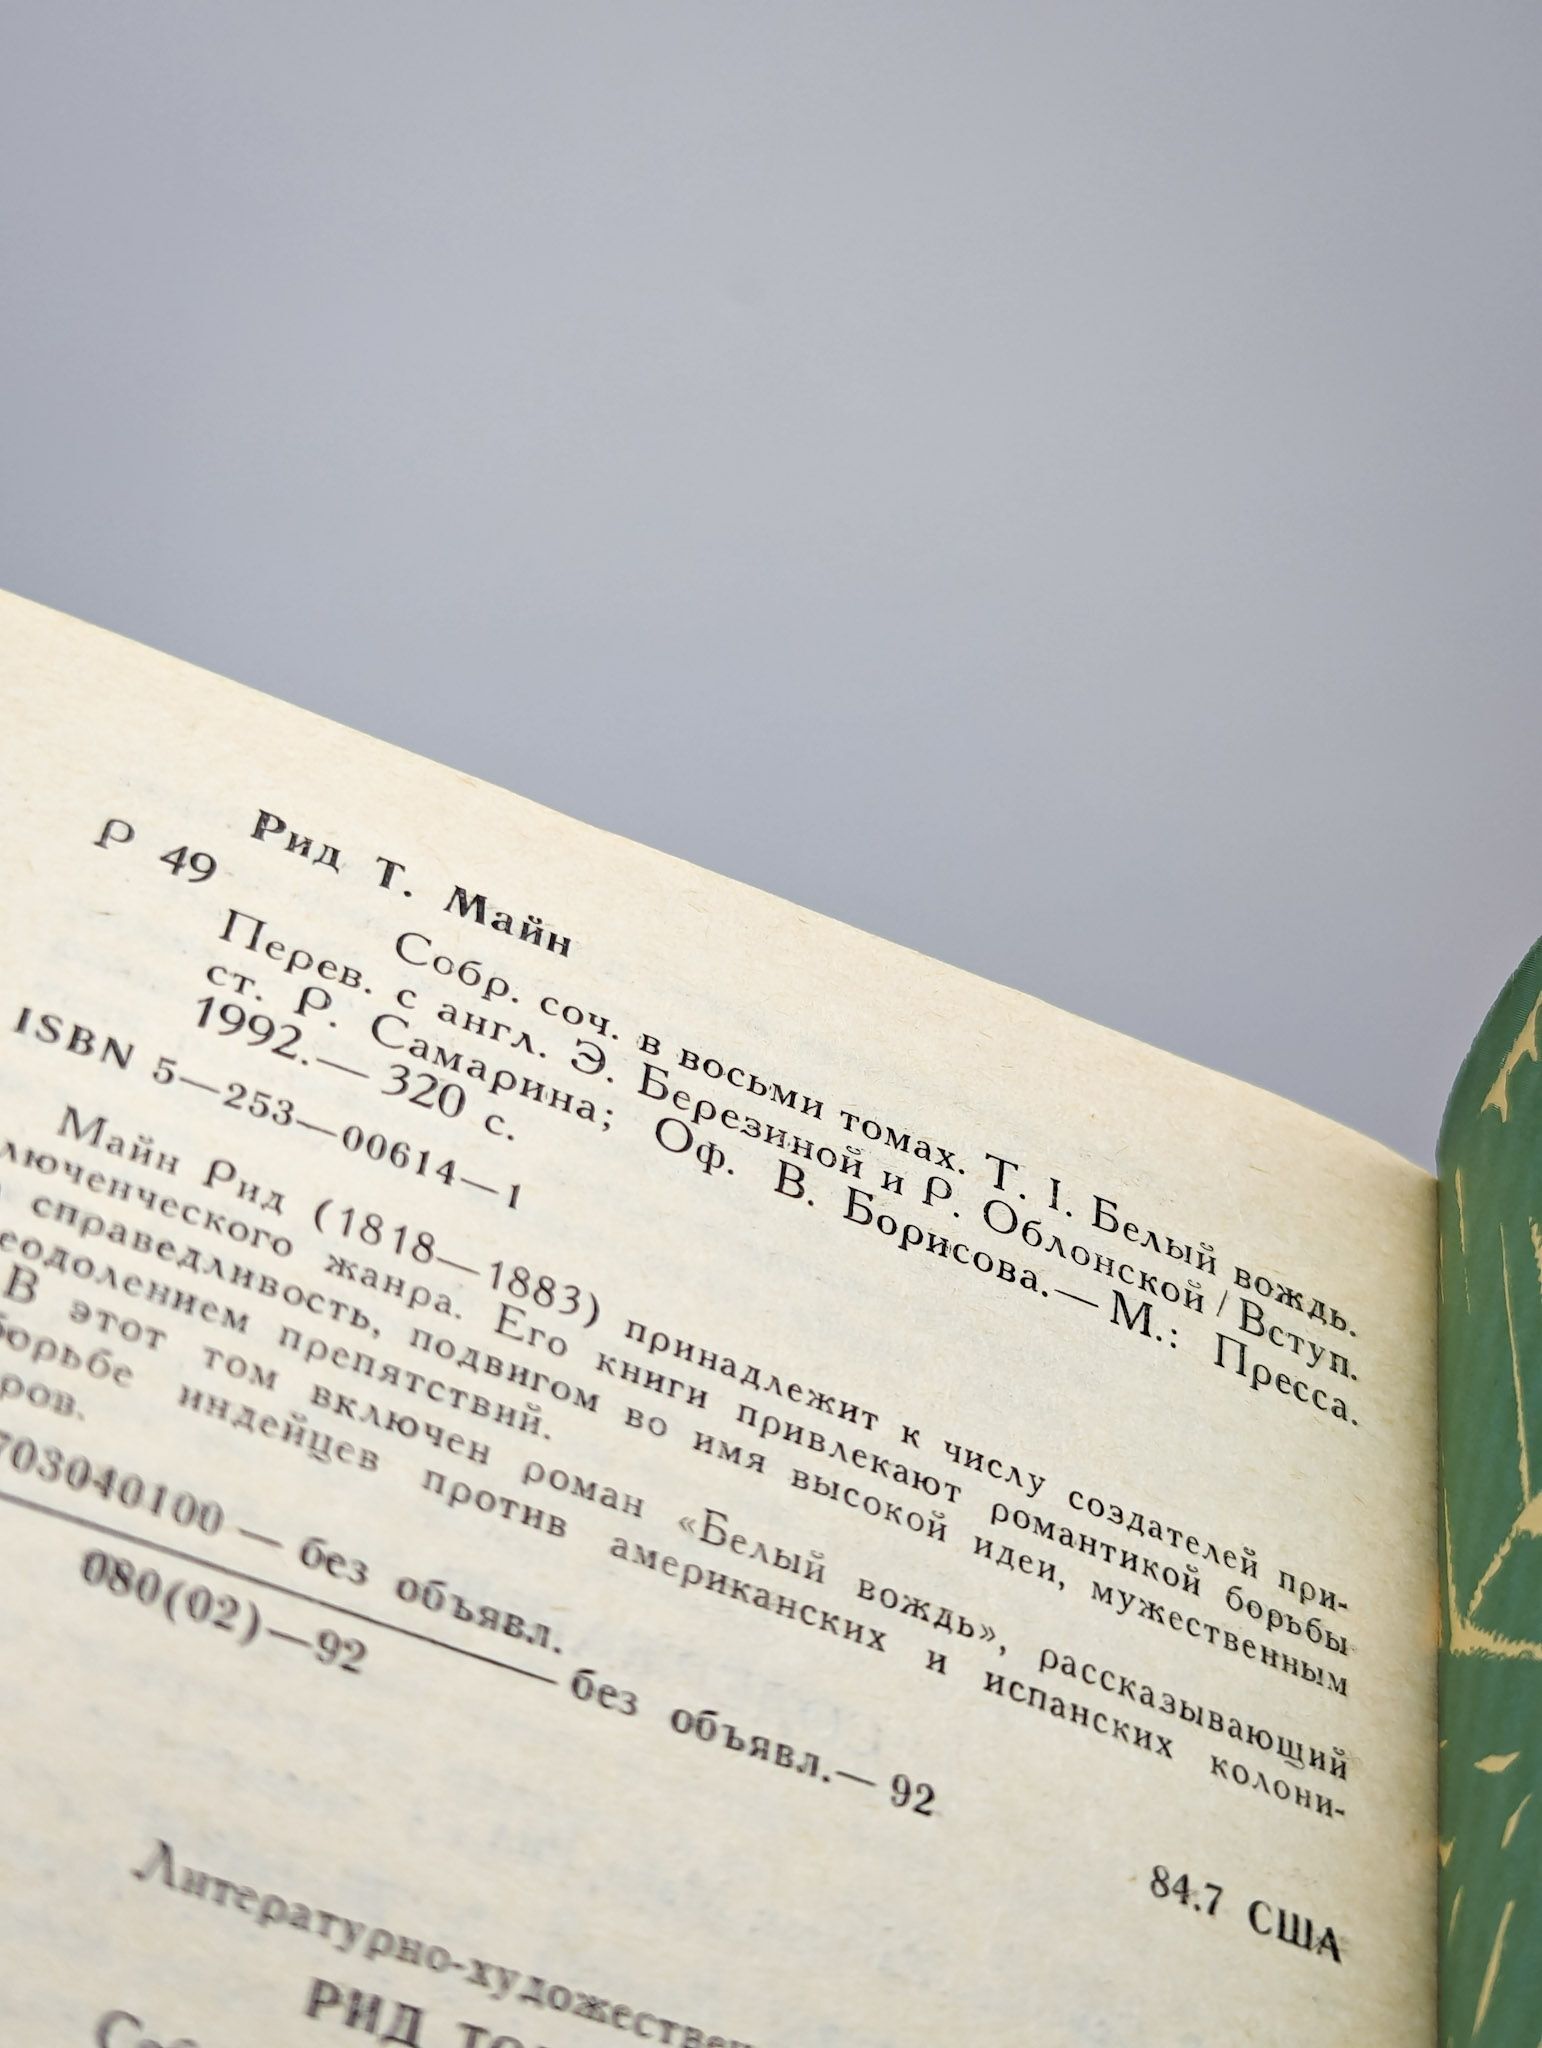 Рид Т. Майн
Р 49
Собр. соч. в восьми томах. Т. I. Белый вождь.
Перев. с англ. Э. Березиной и Р. Облонской / Вступ.
ст. Р. Самарина; Оф. В. Борисова.— М.: Пресса.
1992.— 320 с.
ISBN 5—253—00614—1
Майн Рид (1818—1883) принадлежит к числу создателей при-
люченческого жанра. Его книги привлекают романтикой борьбы
справедливость, подвигом во имя высокой идеи, мужественным
еодолением препятствий.
В этот том включен роман «Белый вождь», рассказывающий
борьбе индейцев против американских и испанских колони-
ров.
703040100 — без объявл.
без объявл.— 92
080(02)—92
84.7 США
Литературно-художествен
РИД ТО